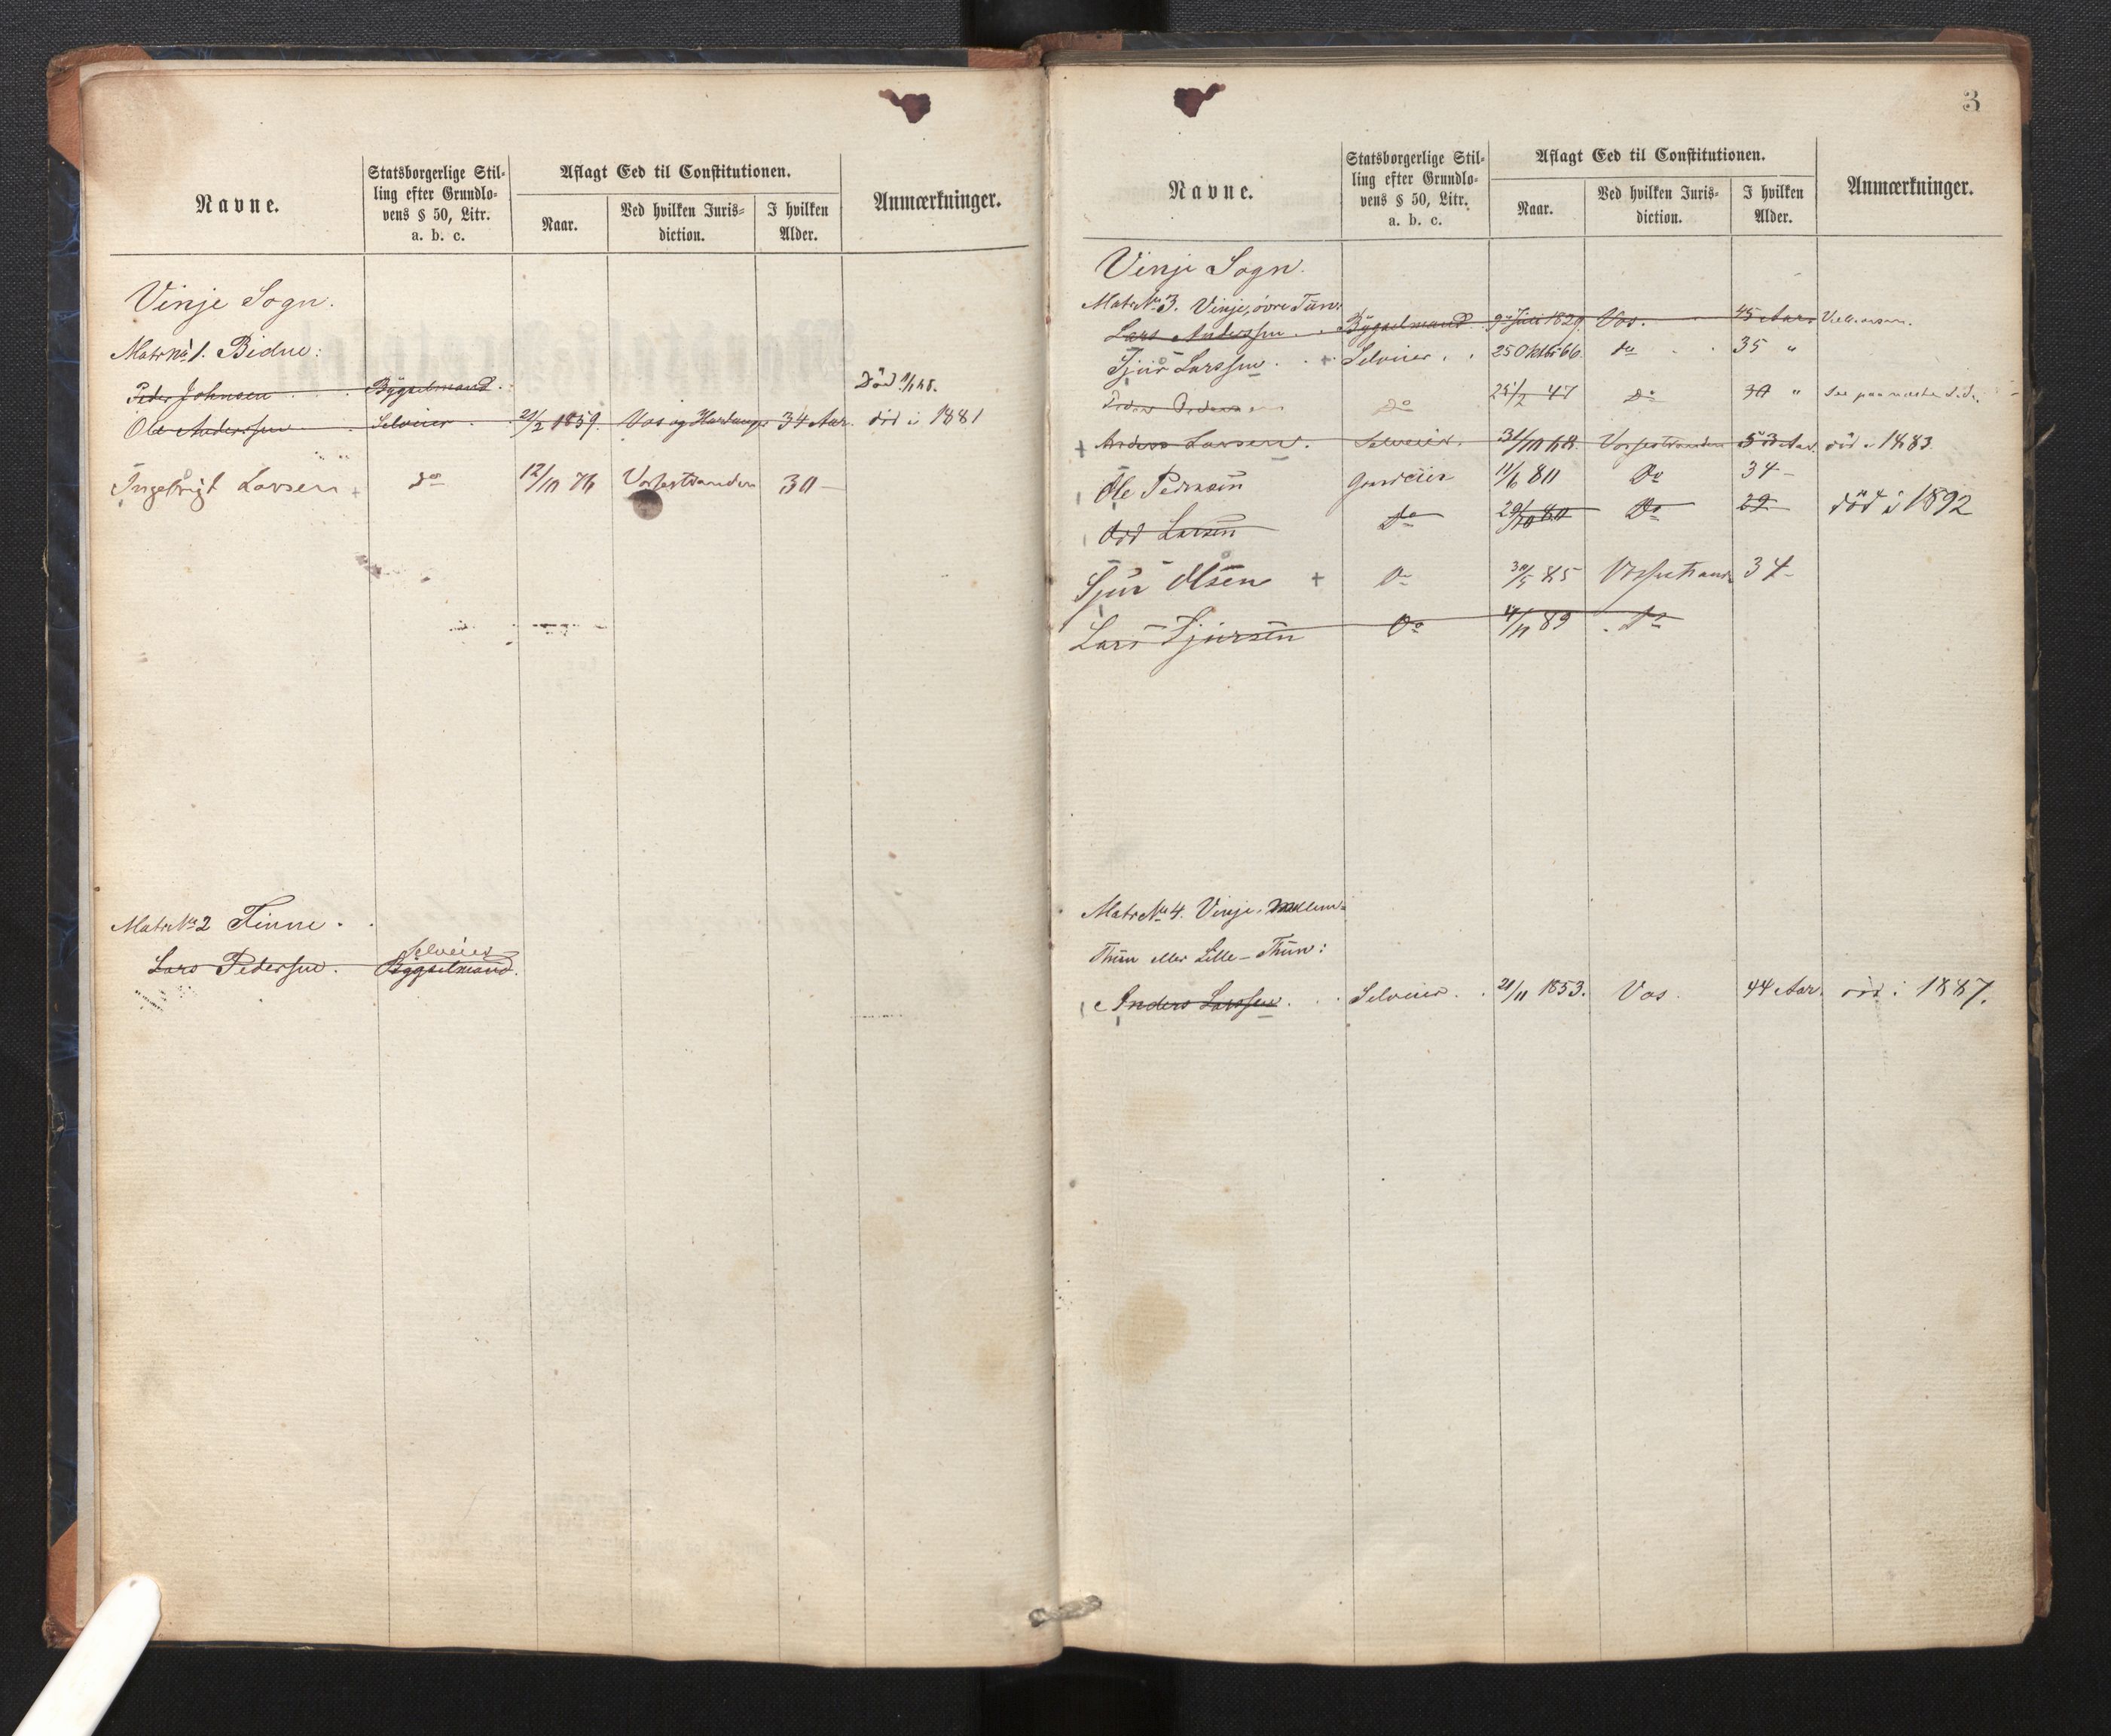 Navne.
Statsborgerlige Stil-
ling efter Grundlo-
vens § 50, Litr.
a. b. c.
Aflagt Eed til Constitutionen.
Naar.
Ved hvilken Juris-
diction.
I hvilken
Alder.
Anmærkninger.
Vinje Sogn.
Matr No 1. Bidne:
Peder Johnsen Byggselmand. Död
Ole Anderssen Selveier 21/2 1859. Vos og Hardanger 34 Aar. död i 1881
Ingebrigt Larsen + do 12/10 76 Vossestranden 30 —
Matr No 2 Tinne.
Selveier
Lars Pederssen. Byggselmand.
3
Navne.
Statsborgerlige Stil-
ling efter Grundlo-
vens § 50, Litr.
a. b. c.
Aflagt Eed til Constitutionen.
Naar.
Ved hvilken Juris-
diction.
I hvilken
Alder.
Anmærkninger.
Vinje Sogn.
Matr No 3. Vinje, övre Tun:
Lars Anderssen Byggselmand 9 Juli 1829. Vos. 45 Aar
Sjur Larssen + Selveier 25 Oktb 66. do 35 "
Peder Pedersen do 25/2 47 do 30 " See paa næste Side
+ Anders Larsen. Selveier. 31/10 68. Vossestranden 53 Aar. död i 1883
Ole Pedersen Gardeier 11/6 80 Do 34 —
Odd Larsen Do 29/10 80 Do 29 död i 1892
Sjur Olsen + Do 30/5 85 Vossestrand 34 —
Lars Sjursen Do 4/11 89 Do
Matr No 4. Vinje, Mellem-
Thun eller Lille-Thun:
Anders Larssen Selveier. 21/11 1853. Vos. 44 Aar. död i 1887.